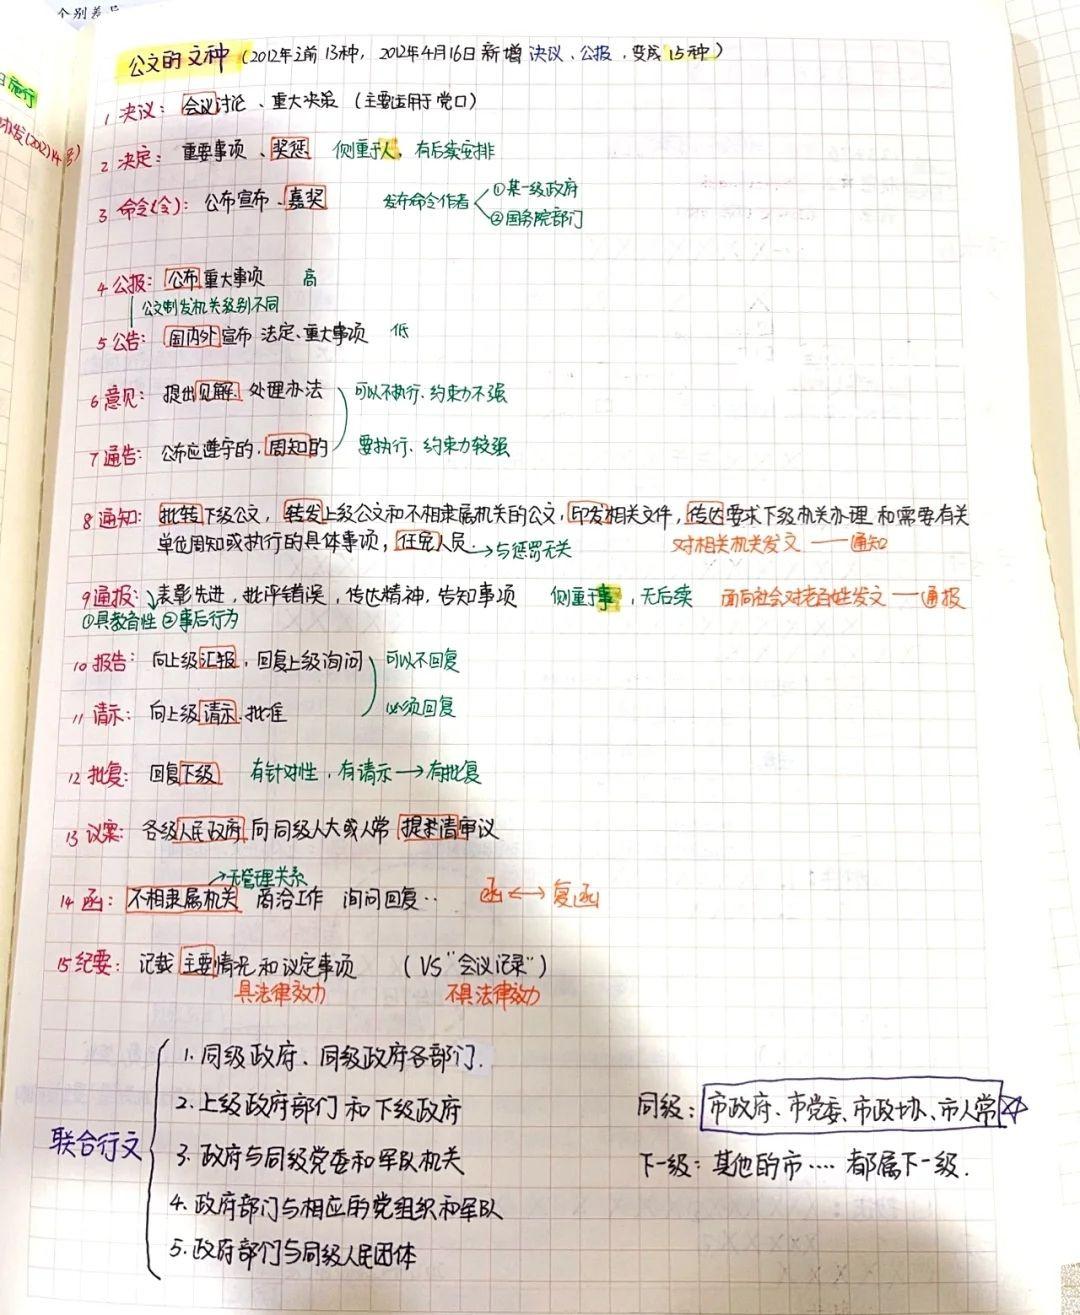 个别差异
日施行
办发(2012)14号)
公文的文种 (2012年之前13种, 2012年4月16日新增 决议、公报, 变成15种)
1 决议: 会议讨论、重大决策 (主要适用于党口)
2 决定: 重要事项、奖惩 侧重于人, 有后续安排
3 命令(令): 公布宣布、嘉奖 发布命令作者 ①某一级政府
②国务院部门
4 公报: 公布重大事项 高
公文制发机关级别不同
5 公告: 国内外宣布 法定、重大事项 低
6 意见: 提出见解、处理办法 可以不执行、约束力不强
7 通告: 公布应遵守的、周知的 要执行、约束力较强
8 通知: 批转下级公文, 转发上级公文和不相隶属机关的公文, 印发相关文件, 传达要求下级机关办理和需要有关
单位周知或执行的具体事项, 任免人员. →与惩罚无关 对相关机关发文 —— 通知
9 通报: 表彰先进, 批评错误, 传达精神, 告知事项 侧重于事, 无后续 面向社会对老百姓发文 — 通报
①具教育性 ②事后行为
10 报告: 向上级汇报, 回复上级询问 可以不回复
11 请示: 向上级请示、批准 必须回复
12 批复: 回复下级 有针对性, 有请示 → 有批复
13 议案: 各级人民政府 向同级人大或人常 提案请审议
→无管理关系
14 函: 不相隶属机关 商洽工作 询问回复·· 函 ↔ 复函
15 纪要: 记载主要情况和议定事项 (VS "会议记录")
具法律效力 不具法律效力
联合行文
1. 同级政府、同级政府各部门.
2. 上级政府部门和下级政府
3. 政府与同级党委和军队机关
4. 政府部门与相应的党组织和军队
5. 政府部门与同级人民团体
同级: 市政府、市党委、市政协、市人常☆
下一级: 其他的市···· 都属下一级.